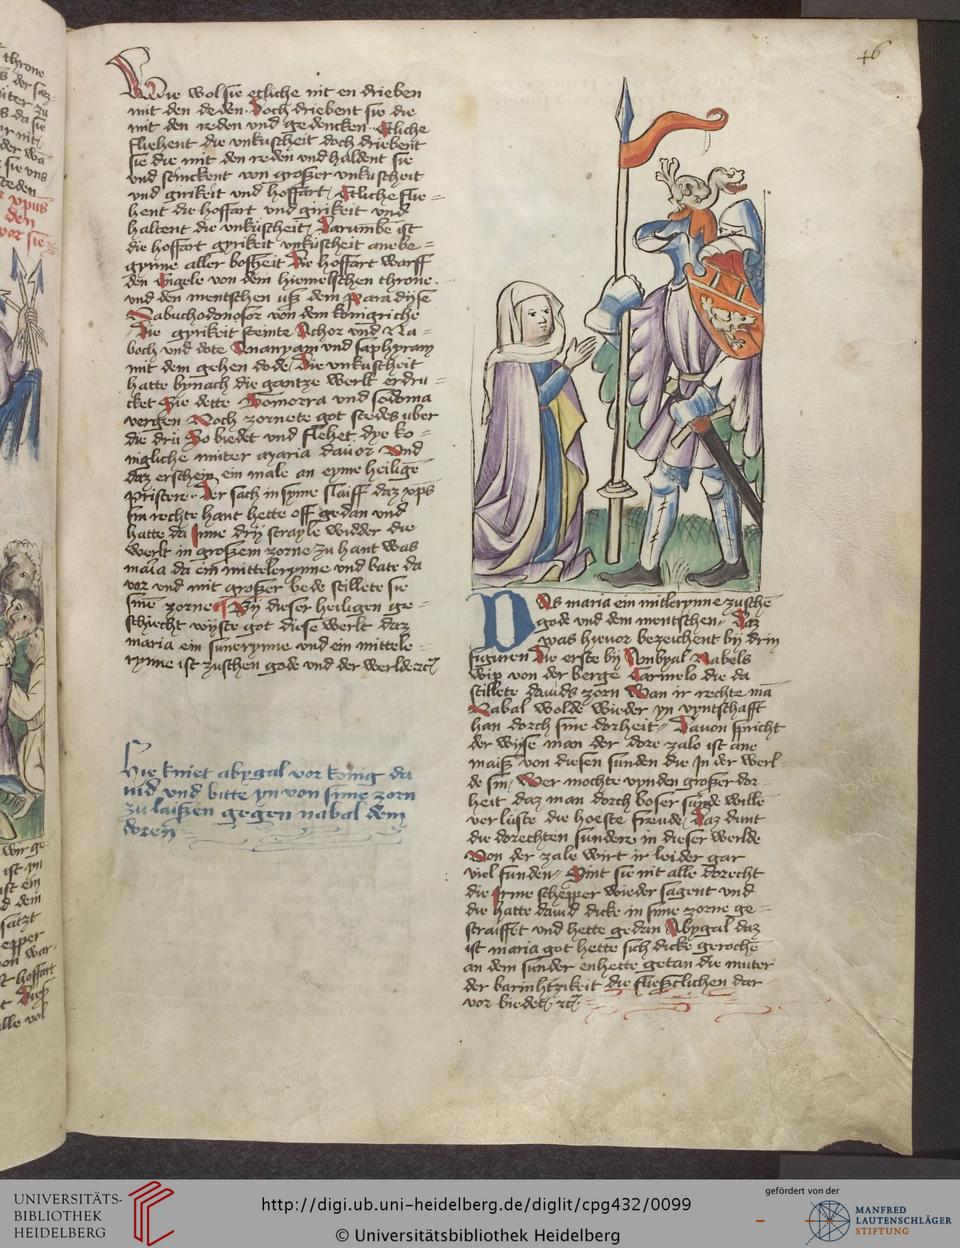 46
Wie wol sie etliche nit en drieben
mit den deden. Doch driebent sie die
mit den reden und gedencken. Etliche
fliehent die unkuscheit doch driebent
sie die mit den reden und haldent sie
und stinckent von großer unkuscheit
und girikeit und hoffart, Etliche flie=
hent die hoffart und girikeit und
haltent die unkuscheit, Darumbe ist
die hoffart gyrikeit unkuscheit anebe=
gynne aller bosheit Die hoffart warff
den Engele von dem hiemelschen throne.
und den mentschen uß dem Paradyse
Nabuchodonosor von dem konigriche
Die gyrikeit steinte Achor und Na=
both und dote Ananyam und saphyram
mit dem gehen dode, Die unkuscheit
hatte bynach die gantze werlt erdru=
cket Sie dette Gomorra und sodoma
Noch zornete got stedes uber
die drü So biedet und flehet dye ko=
nigliche muter maria davor Und
daz erschein ein male an eyme heilige
pristere. Der sach in syme slaiff daz xps
sin rechte hant hette off gedan und
hatte da Inne drij strayle widder die
werlt in großem zorne zu hant was
maria da ein mittelerynne und bate da
vor und mit großer bede stillete sie
sine zorne Bij dieser heiligen ge=
schiecht wyste got diese werlt daz
maria ein sunerynne und ein mittele=
rynne ist zuschen gode und der werlde etc
Hie kniet abygal vor konig da
uid und bitte yn von sime zorn
zu laißen gegen nabal dem
doren
Das maria ein mitlerynne zusche
gode und dem mentschen, Daz
was hievor bezeichent bij drin
figuren Die erste bij Nabels
wip von der berge Carmelo die da
stillete dauids zorn Wan ir rechte ma
Nabal wolde wieder yn vyntschafft
han dorch sine dorheit, Davon spricht
der wyse man der dore zale ist ane
maiß von diesen sunden die In der werl
de sin, Wer mochte vynden großer dor=
heit daz man dorch boser sunde wille
verlüste die hoeste freude, Daz dunt
die dorechten sundere in dieser werlde
Von der zale wirt ir leider gar
viel funden, Sint sie nit alle dorecht
die Irme schepper wieder sagent und
die hatte dauid dicke in sime zorne ge=
straiffet und hette gedan Abygal daz
ist maria got hette sich dicke geroche
an dem sunder enhette getan die muter
der barmhertzikeit die flißeclichen dar=
vor biedet, etc
UNIVERSITÄTS-
BIBLIOTHEK
HEIDELBERG
http://digi.ub.uni-heidelberg.de/diglit/cpg432/0099
© Universitätsbibliothek Heidelberg
gefördert von der
MANFRED
LAUTENSCHLÄGER
STIFTUNG